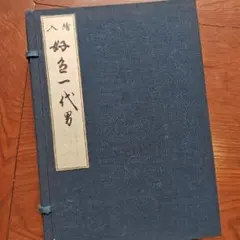 入繪
好色一代男